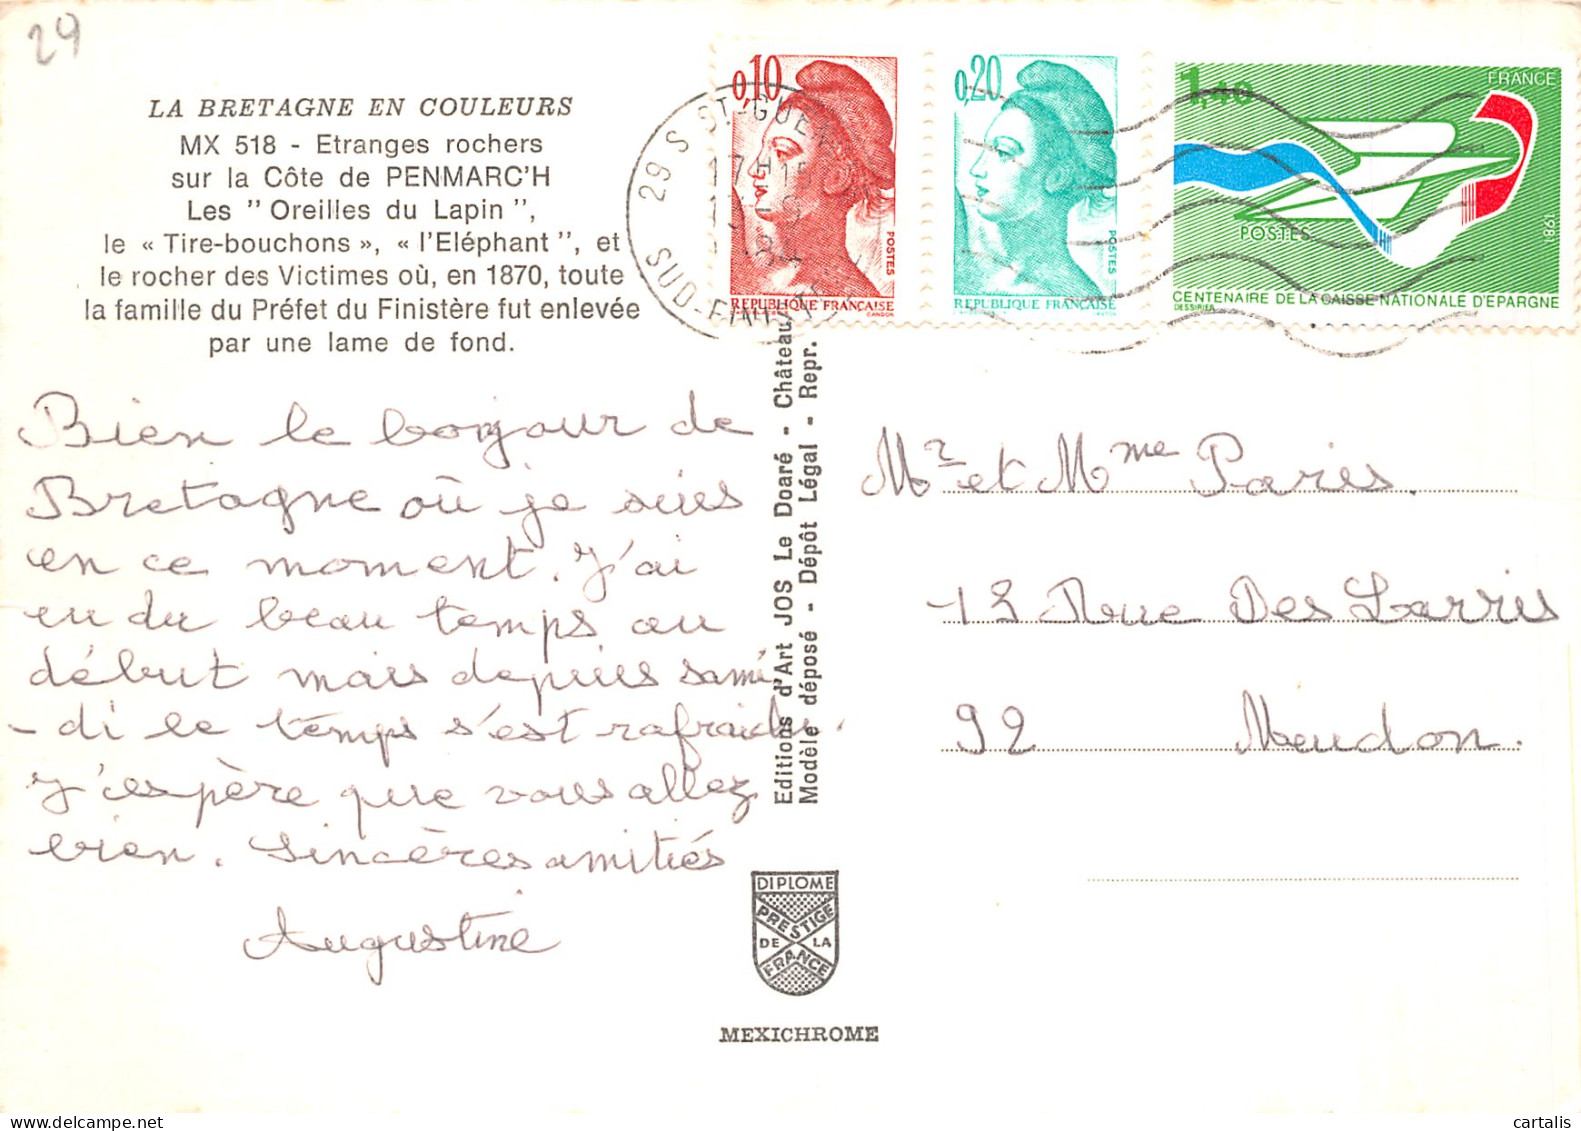 29
LA BRETAGNE EN COULEURS
MX 518 - Etranges rochers
sur la Côte de PENMARC'H
Les " Oreilles du Lapin ",
le « Tire-bouchons », « l'Eléphant ", et
le rocher des Victimes où, en 1870, toute
la famille du Préfet du Finistère fut enlevée
par une lame de fond.
Bien le bonjour de
Bretagne où je suis
en ce moment. J'ai
eu du beau temps au
début mais depuis same
-di le temps s'est rafraichi.
J'espère que vous allez
bien. Sincères amitiés
Augustine
Editions d'Art JOS Le Doaré - Château
Modèle déposé - Dépôt Légal - Repr.
DIPLOME
PRESTIGE
DE LA
FRANCE
MEXICHROME
0,10
POSTES
REPUBLIQUE FRANÇAISE
GANDON
0,20
POSTES
REPUBLIQUE FRANÇAISE
1,40
FRANCE
POSTES
1981
CENTENAIRE DE LA CAISSE NATIONALE D'EPARGNE
DESSIRIER
29 S ST-GUE
17H15
SUD-FIN
Mr et Mme Paris.
12 Rue Des Larris
92 Meudon.
cartalis